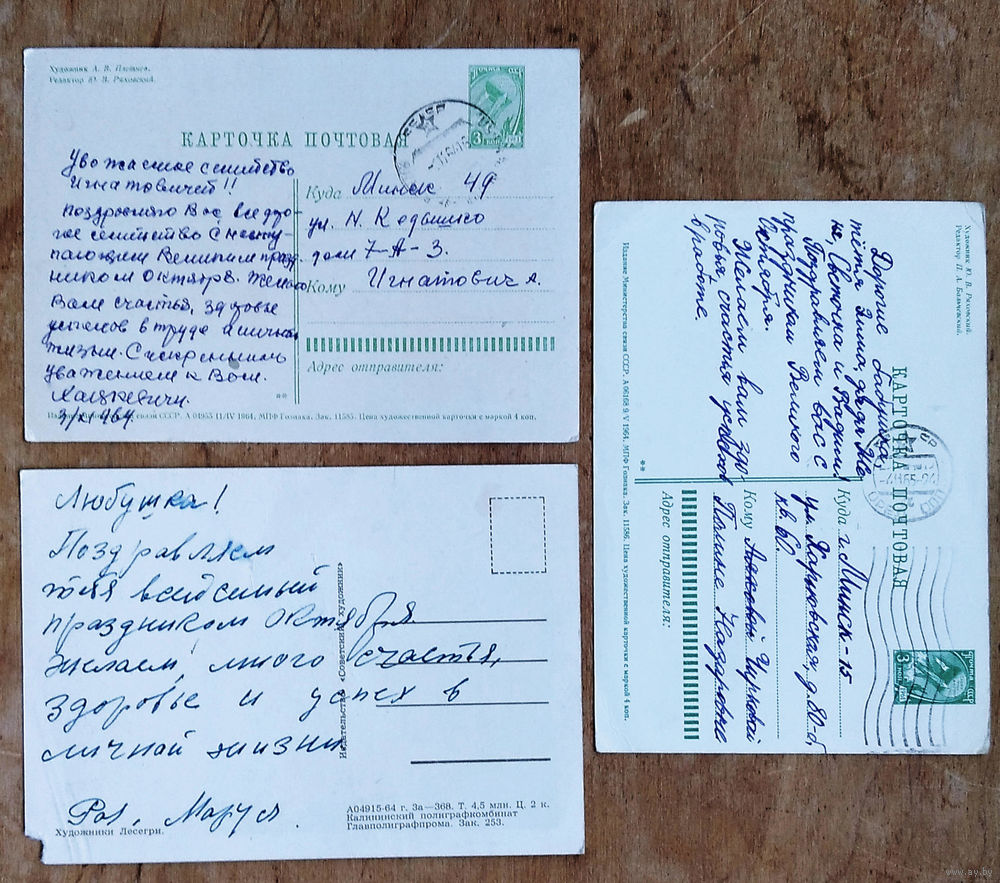 Художник А. В. Плетнев.
Редактор Ю. В. Ряховский.
ПОЧТА СССР
3 КОП.
КАРТОЧКА ПОЧТОВАЯ
Уважаемое семейство
Игнатовичей!!
Поздравляю Вас все
семейство с насту-
пающим Великим празд-
ником Октября. Желаю
Вам счастья, здоровье
успехов в труде и личной
жизни. С искренним
уважением к Вам.
Куда Минск 49
ул. Н. Кедышко
дом 7-А-3.
Кому Игнатович А.
Адрес отправителя:
**
связи СССР. А 04953 11/IV 1964. МПФ Гознака. Зак. 11585. Цена художественной карточки с маркой 4 коп.
Любушка!
Поздравляем
тебя всей семьей
праздником Октября
желаем много счастья,
здоровье и успех в
личной жизни
Маруся
Издательство «Советский художник»
Художники Лесегри.
А04915-64 г. За—368. Т. 4,5 млн. Ц. 2 к.
Калининский полиграфкомбинат
Главполиграфпрома. Зак. 253.
Художник Ю. В. Ряховский.
КАРТОЧКА ПОЧТОВАЯ
Дорогие бабушка,
тётя Эмма, дядя Же-
ня, Светочка и Вадим!
Поздравляем вас с
праздником Великого
Октября.
Желаем вам здо-
ровья, счастья, успехов
в работе.
Куда г. Минск-15
ул. Харьковская, д. 80-б
кв. 60.
Кому
Полине Назаровне
Адрес отправителя:
**
Издание Министерства связи СССР. А 06168 9/V 1964. МПФ Гознака. Зак. 11586. Цена художественной карточки с маркой 4 коп.
ПОЧТА СССР
3 КОП.
www.ay.by